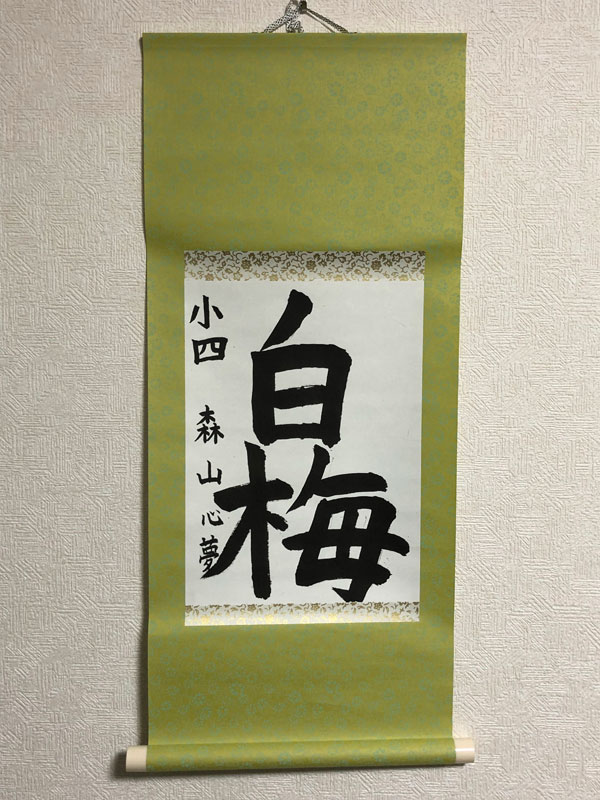 白梅
小四 森山心夢